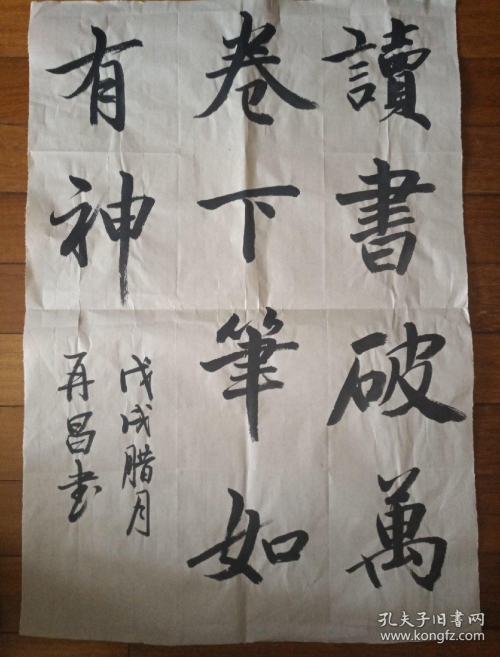 讀書破萬
卷下筆如
有神
戊戌腊月
再昌书
孔夫子旧书网
www.kongfz.com